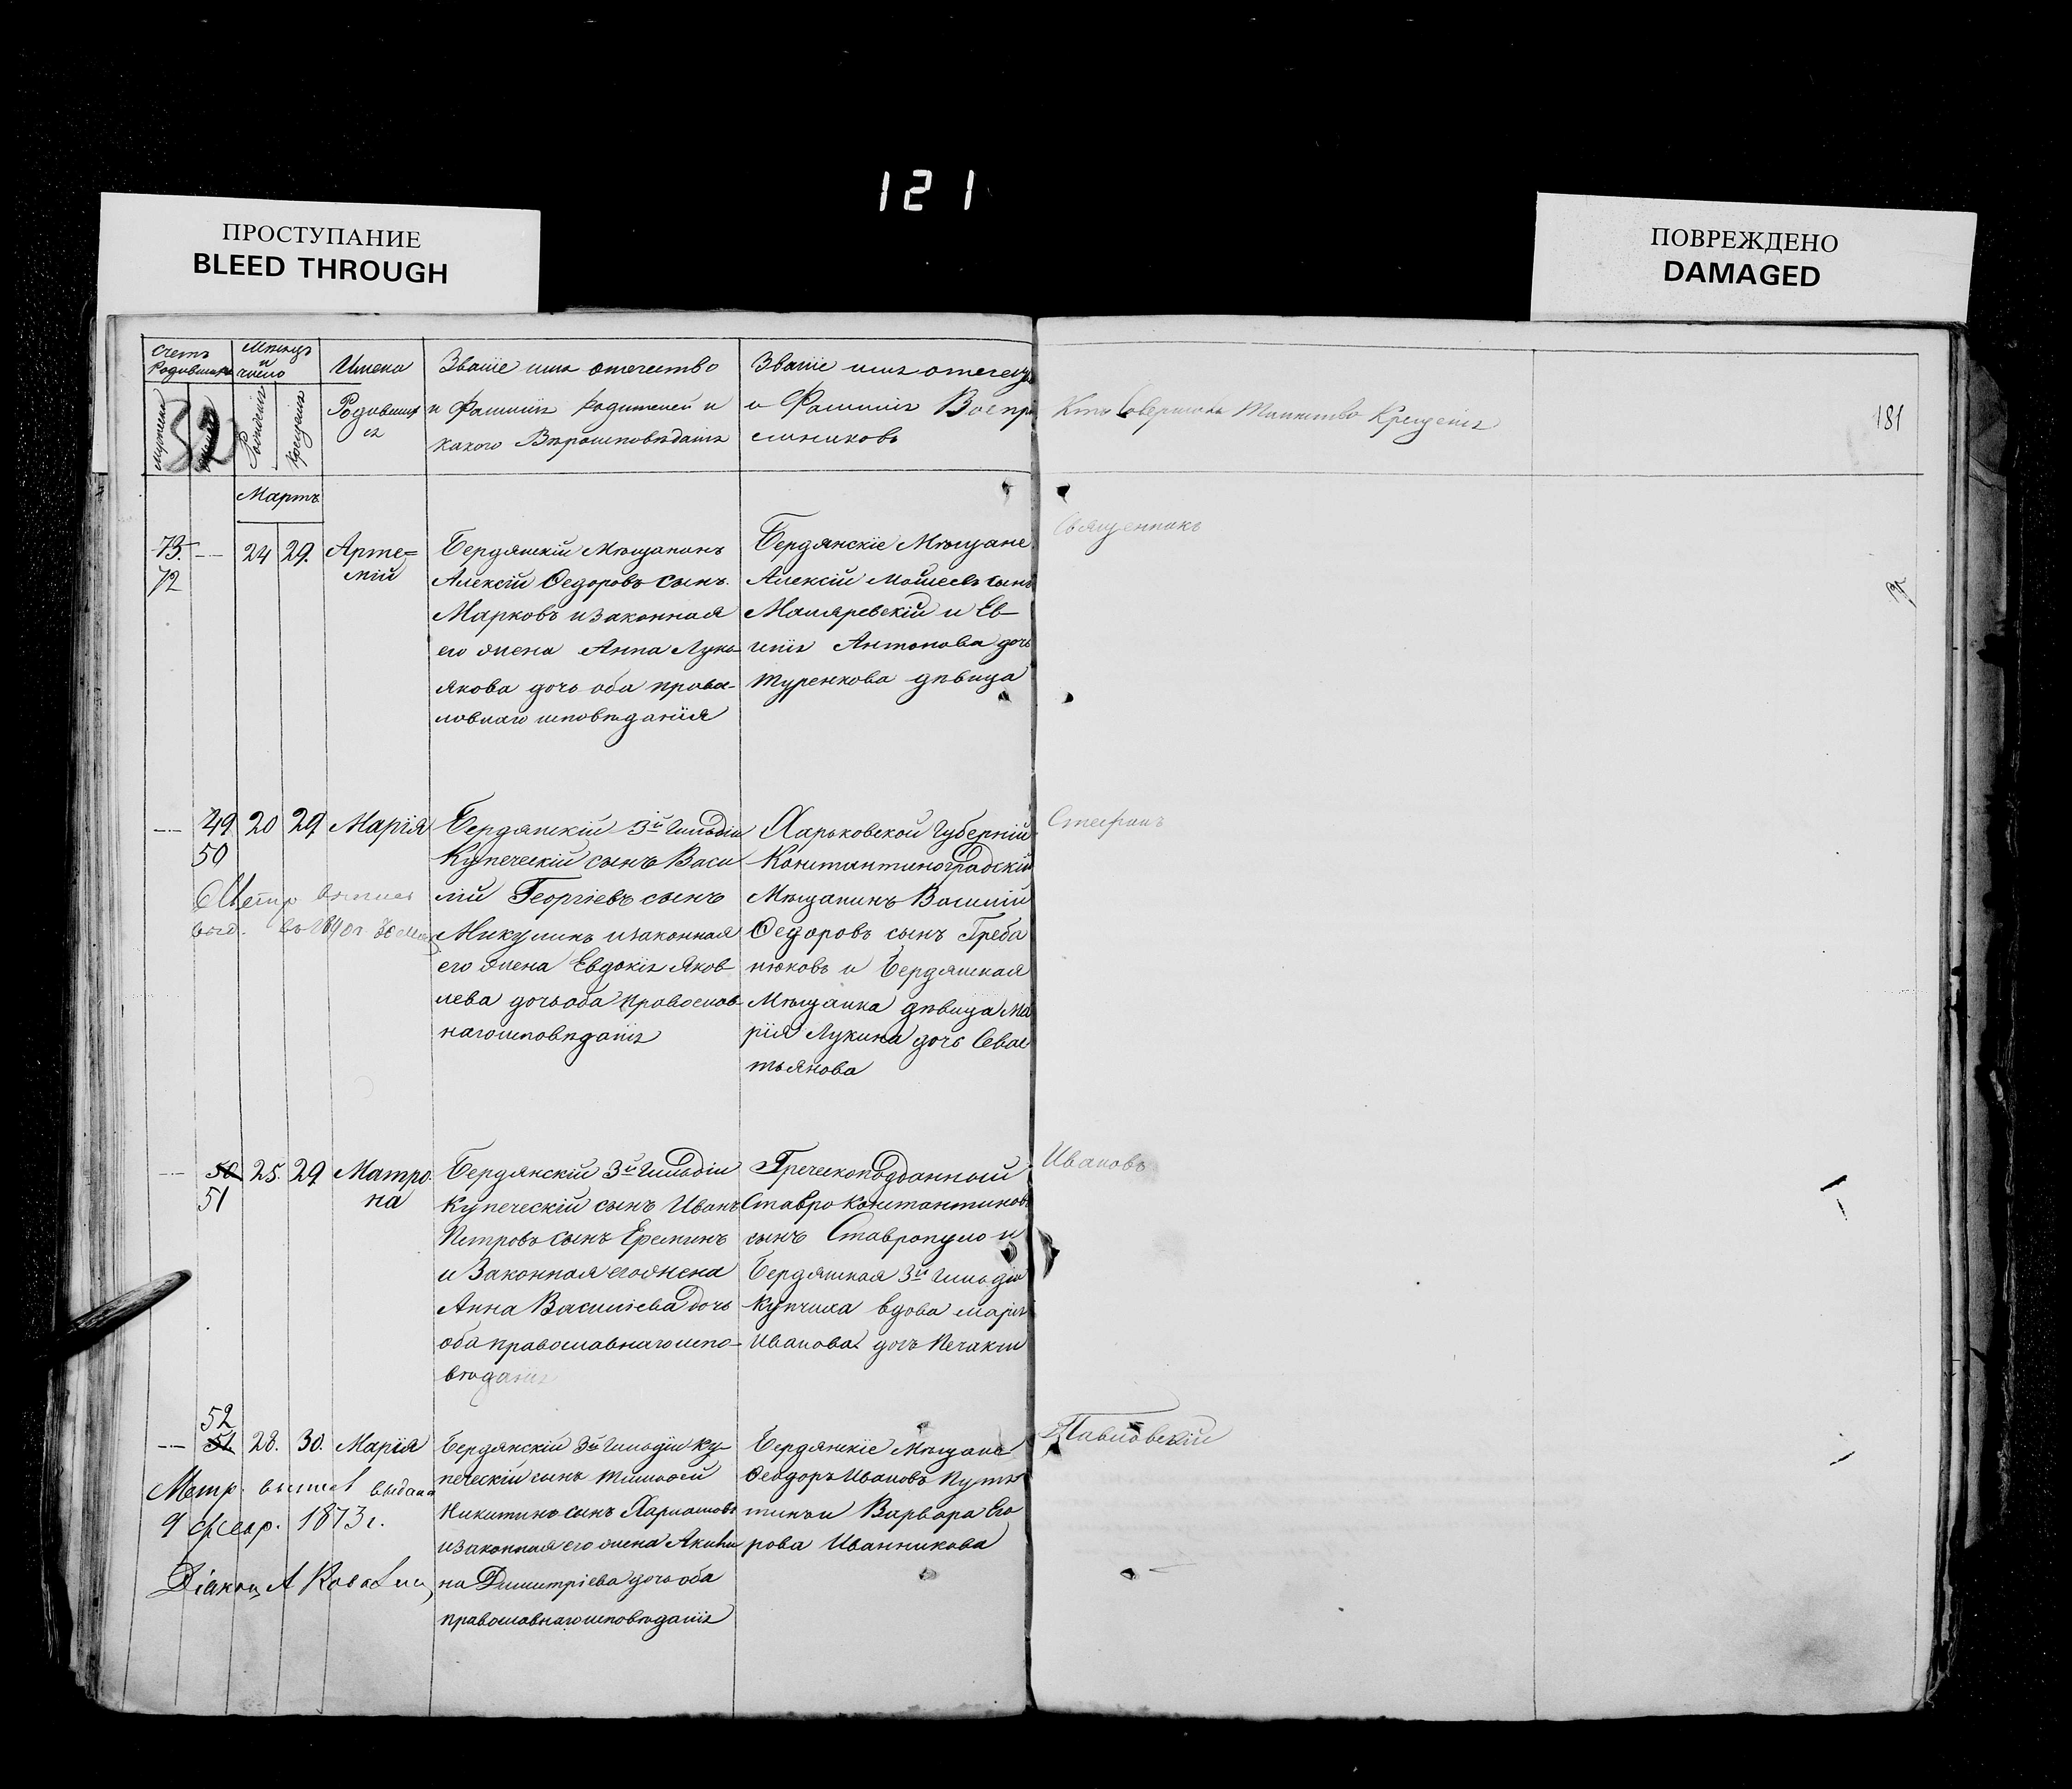 121
ПРОСТУПАНИЕ
BLEED THROUGH
ПОВРЕЖДЕНО
DAMAGED
Счетъ родившихся
Мѣсяцъ и число
Имена Родившихся
мужеска
рожденія
крещенія
52
Званіе имя отечество
и Фамилія Родителей и
какого Вѣроисповѣданія
Званіе имя отечество
и Фамилія Воспрі
емниковъ
Кто Совершалъ Таинство Крещенія
181
Мартъ
73
72
24 29. Арте=
мій
Бердянскій Мѣщанинъ
Алексій Ѳедоровъ сынъ
Марковъ и законная
его жена Анна Лукь-
якова дочь оба право-
славнаго исповѣданія
Бердянскіе Мѣщане
Алексій Моисеевъ сынъ
Маляревскій и Ев-
генія Антонова дочь
Туренкова дѣвица
Священникъ
49
50
20 29 Марія
Метр выпись
выд. въ
Бердянскій 3й Гильдіи
Купеческій сынъ Васи
лій Георгіевъ сынъ
Микулинъ и законная
его жена Евдокія Яков-
лева дочь оба православ-
наго исповѣданія
Харьковской Губерніи
Константиноградскій
Мѣщанинъ Василій
Ѳедоровъ сынъ Греба
нюковъ и Бердянская
Мѣщанка дѣвица Ма
рія Лукина дочь Севас
тьянова
Стефанъ
50
51
25. 29 Матро-
на
Бердянскій 3й Гильдіи
купеческій сынъ Иванъ
Петровъ сынъ Ереминъ
и Законная его жена
Анна Василіева дочь
оба православнаго испо-
вѣданія
Греческоподданный
Ставро Константиновъ
сынъ Ставропуло и
Бердянская 3й Гильдіи
купчиха вдова Марія
Иванова дочь
Ивановъ
52
51
28. 30. Марія
Метр. выпись выдана
9 февр. 1873 г.
Діаконъ А
Бердянскій 3й Гильдіи ку-
печескій сынъ Тимофей
Никитинъ сынъ
и законная его жена Акили
на Димитріева дочь оба
православнаго исповѣданія
Бердянскіе Мѣщане
Ѳеодоръ Ивановъ
и Варвара Его
рова Иванникова
Павловскій